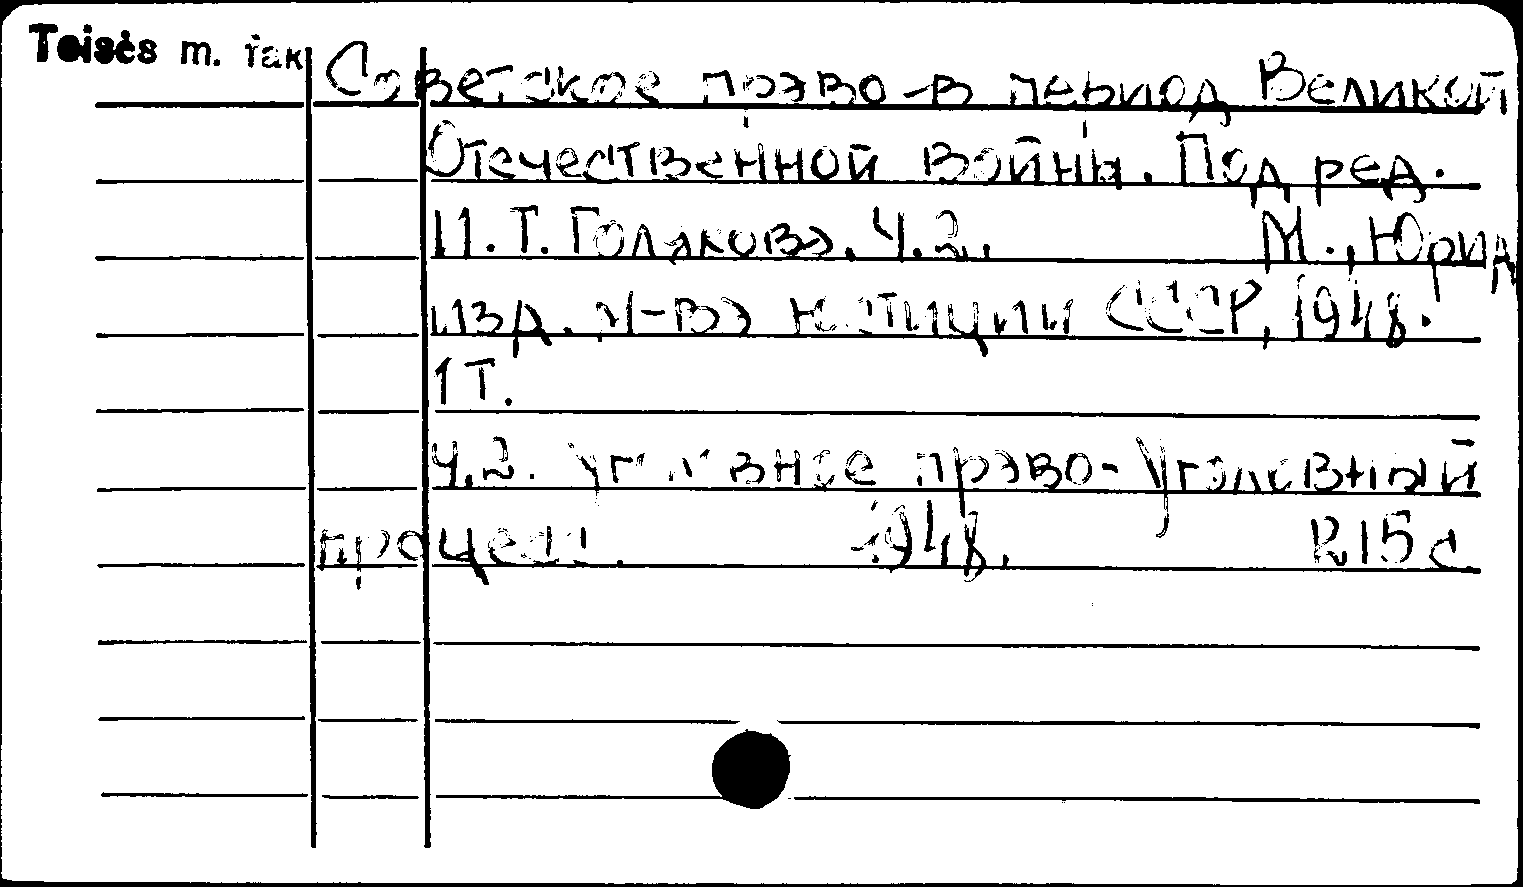 Teisės m. fak
Советское право в период Великой
Отечественной войны. Под ред.
И. Т. Голякова. Ч. 2. М., Юрид.
изд. М-ва юстиции СССР, 1948.
1 т.
Ч. 2. Уголовное право - Уголовный
процесс. 1948. R15c